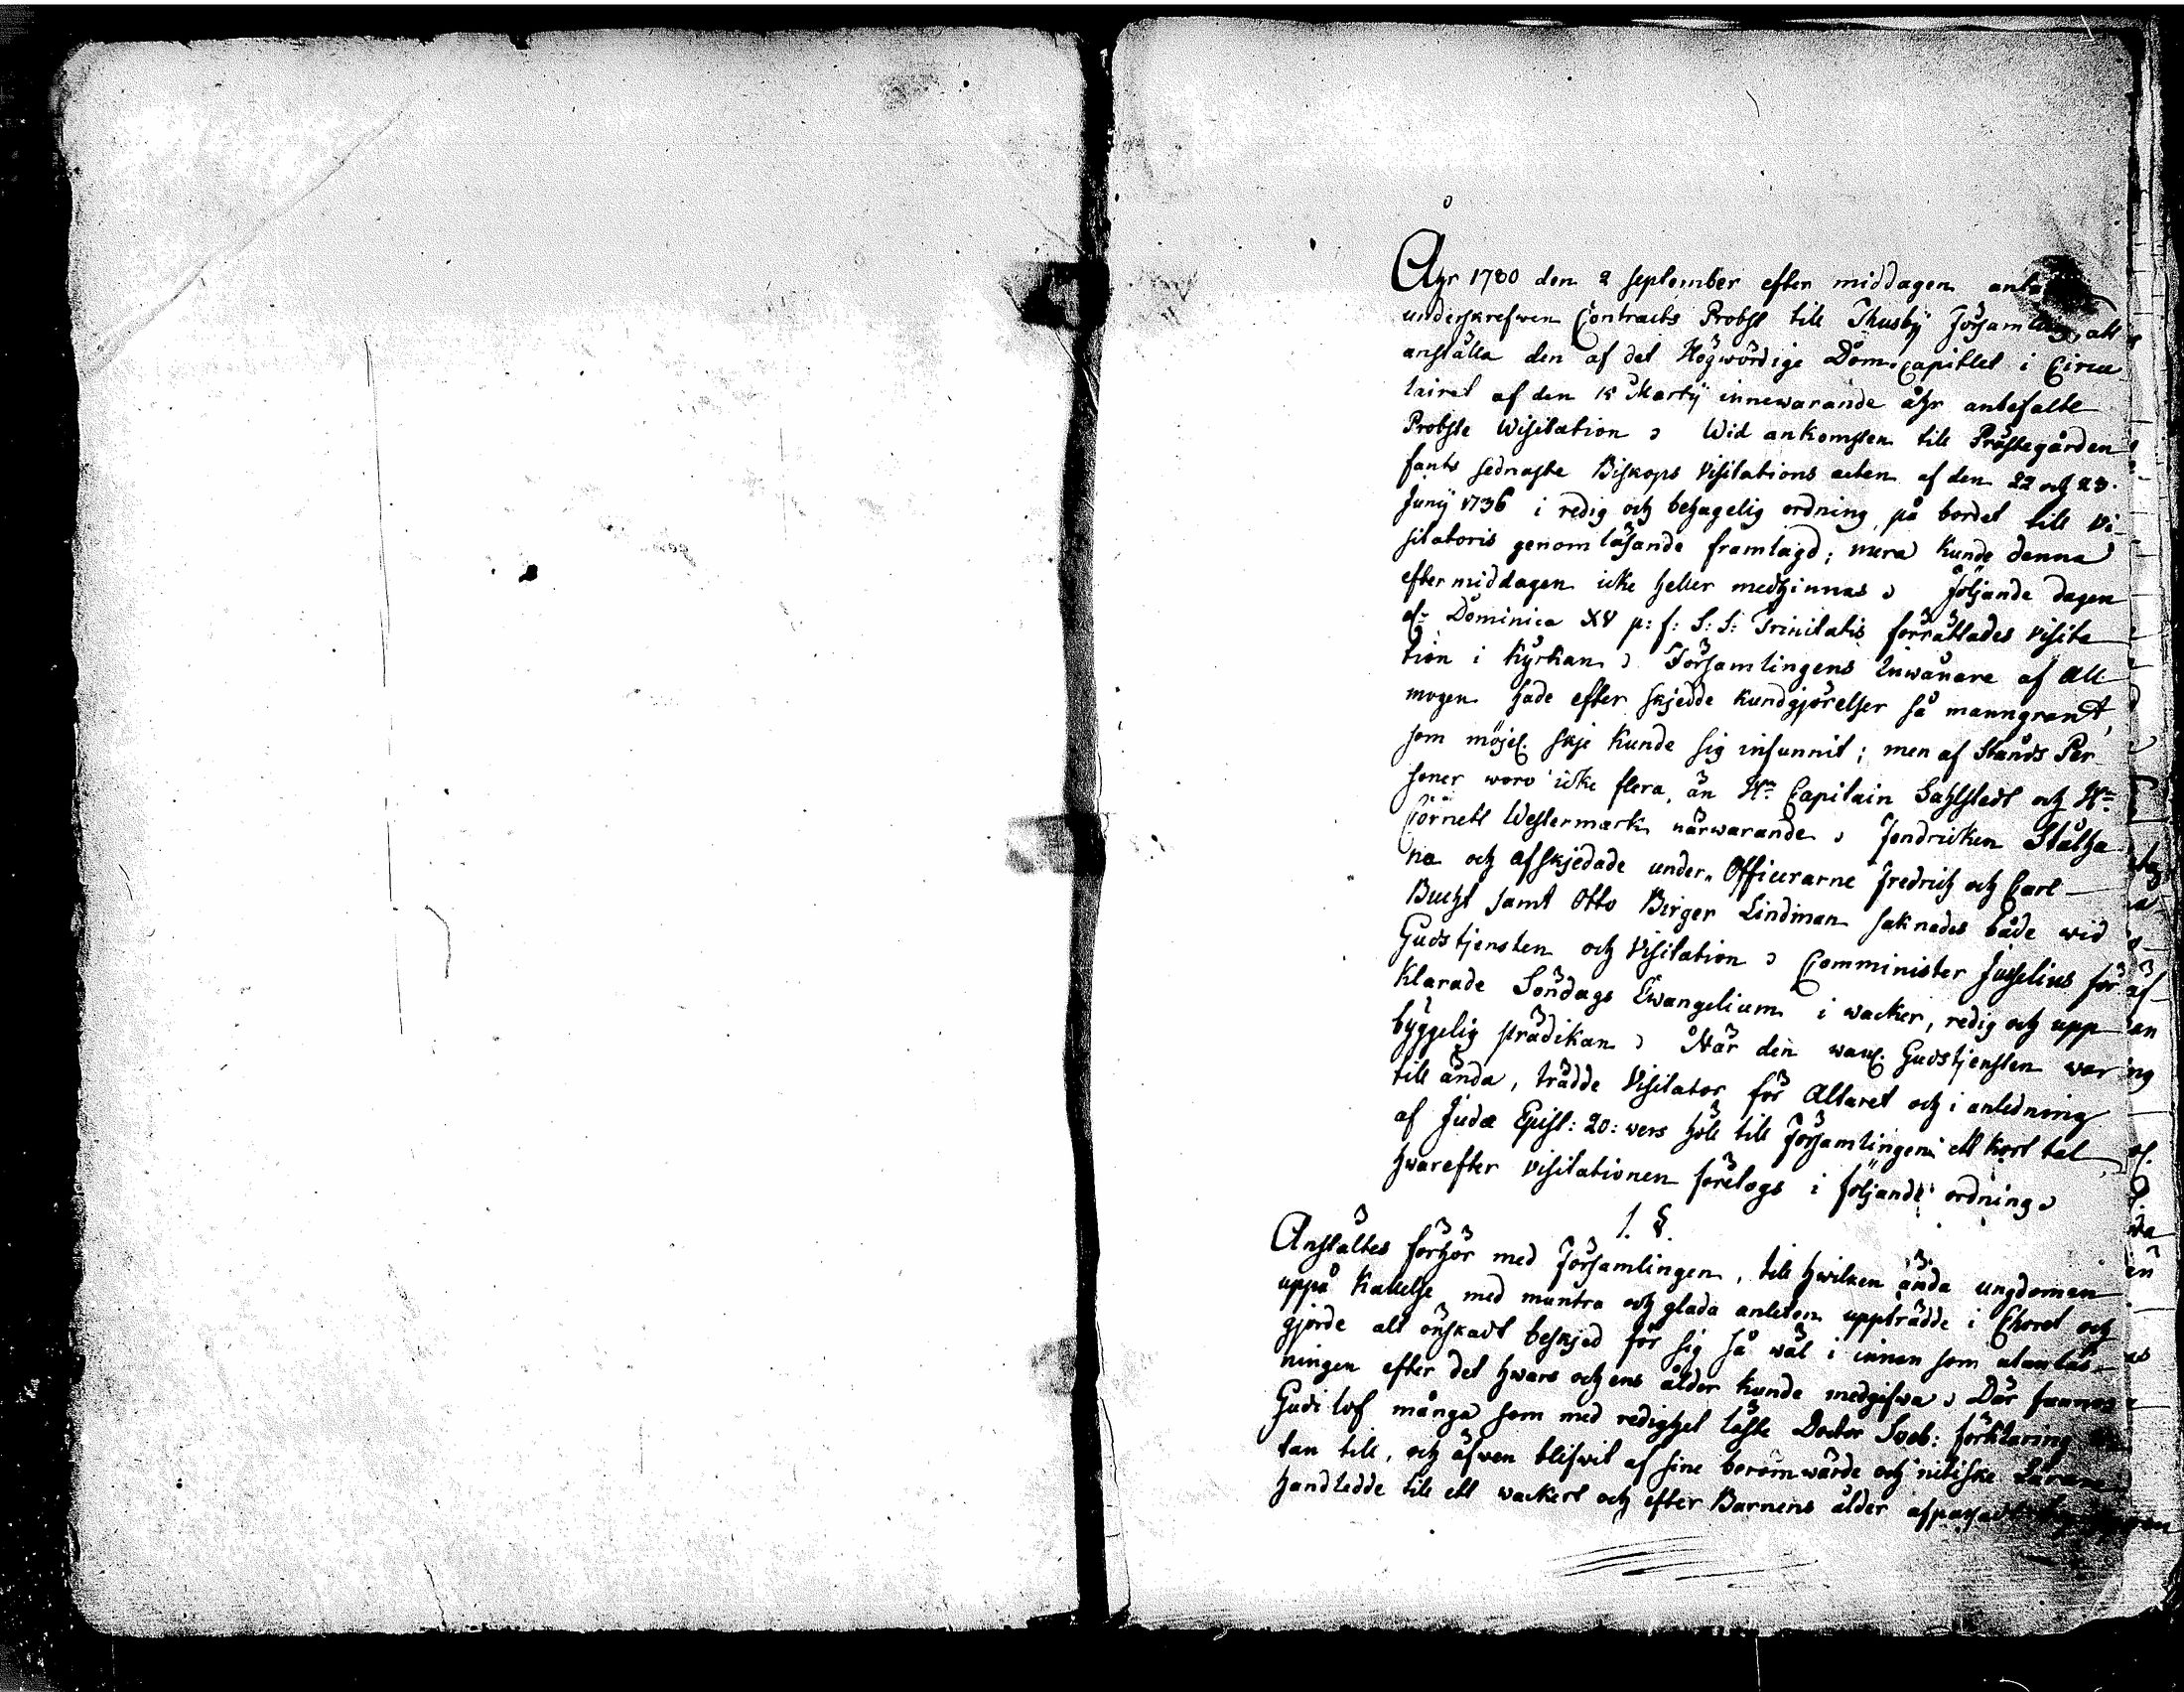 Åhr 1780 den 2 September efter middagen
underskrefven Contracts Probst till Thusby Församling, att
anställa den af det Högwördige Dom-Capitlet i Circu
lairet af den 15 Martij innewarande åhr anbefalte
Probste Wisitation. Wid ankomsten till Prästegården
fants sednaste Biskops Visitations acten af den 22 och 23.
Junij 1736 i redig och behagelig ordning, på bordet till Vi-
sitatoris genomläsande framlagd; mera kunde denna
eftermiddagen icke heller medhinnas. Följande dagen
d: Dominica XV p: f: S: S: Trinitatis förrättades Visita
tion i Kyrkan. Församlingens Inwånare af All
mogen hade efter skjedde kundgjörelser så manngrant,
som möjel. skje kunde sig infunnit; men af Stånds Per
soner woro icke flera, än Hr Capitain Sahlstedt och Hr
Cornett Westermark närwarande. Fendricken Stålha
na och afskjedade under-Officerarne Fredrich och Carl
Bucht samt Otto Birger Lindman saknades både wid
Gudstjensten och Visitation. Comminister Juselius för
klarade Söndags Ewangelium i wacker, redig och upp
byggelig prädikan. När den wanl. Gudstjensten war
till ända, trädde Visitator för Altaret och i anledning
af Judæ Epist: 20: vers höll till Församlingen ett kort tal
hwarefter visitationen företogs i följande ordning.
1. §.
Anstältes förhör med Församlingen, till hwilken ända ungdomen
uppå kallelse med muntra och glada anleten uppträdde i Choret och
gjorde alt önskadt beskjed för sig så wäl i innan som utanläs-
ningen efter det hwars och ens ålder kunde medgifwa. Där funnos
Gudi lof många som med redighet läste Doctor Sveb: förklaring
tan till, och äfwen blifwit af sine berömwärde och nitiske Lärare
handledde till ett wackert och efter Barnens ålder afpassadt